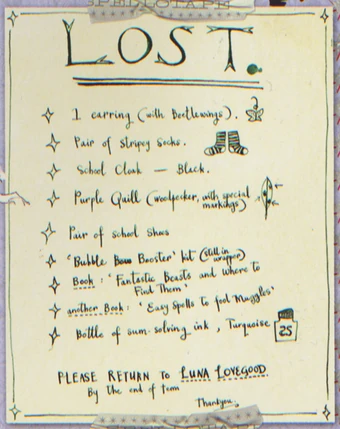 SPELLOTAPE
LOST.
1 earring (with Beetlewings).
Pair of Stripey Socks.
School Cloak — Black.
Purple Quill (woodpecker, with special
markings)
Pair of School Shoes
'Bubble Booster' kit (still in
wrapper)
Book: 'Fantastic Beasts and where to
Find Them'
another Book: 'Easy Spells to fool Muggles'
Bottle of sum-solving ink, Turquoise
25
PLEASE RETURN TO LUNA LOVEGOOD.
By the end of term
Thankyou.